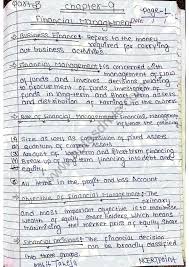 Part-B
Chapter-9
Page-1
Financial Management
Date
① Business Finance: Refers to the money
required for carrying
out business activities
② Financial Management: is concerned with
management of flow
of funds and involves decisions relating
to procurement of funds, investment of
funds in long term and short term assets
and distribution of earnings to the owners
Role of Financial Management: Financial management
① Size as well as composition of fixed assets
② Quantum of current assets
③ Amount of long term and short term financing
④ Break up of long term financing into debt and
equity
⑤ All items in the profit and loss Account
Objective of Financial Management: The primary
and most important objective is to maximise
wealth of equity share holders which means
maximising the market price of equity share
Financial Decisions: The financial decision
can be broadly classified
into three groups
NCERTPOINT